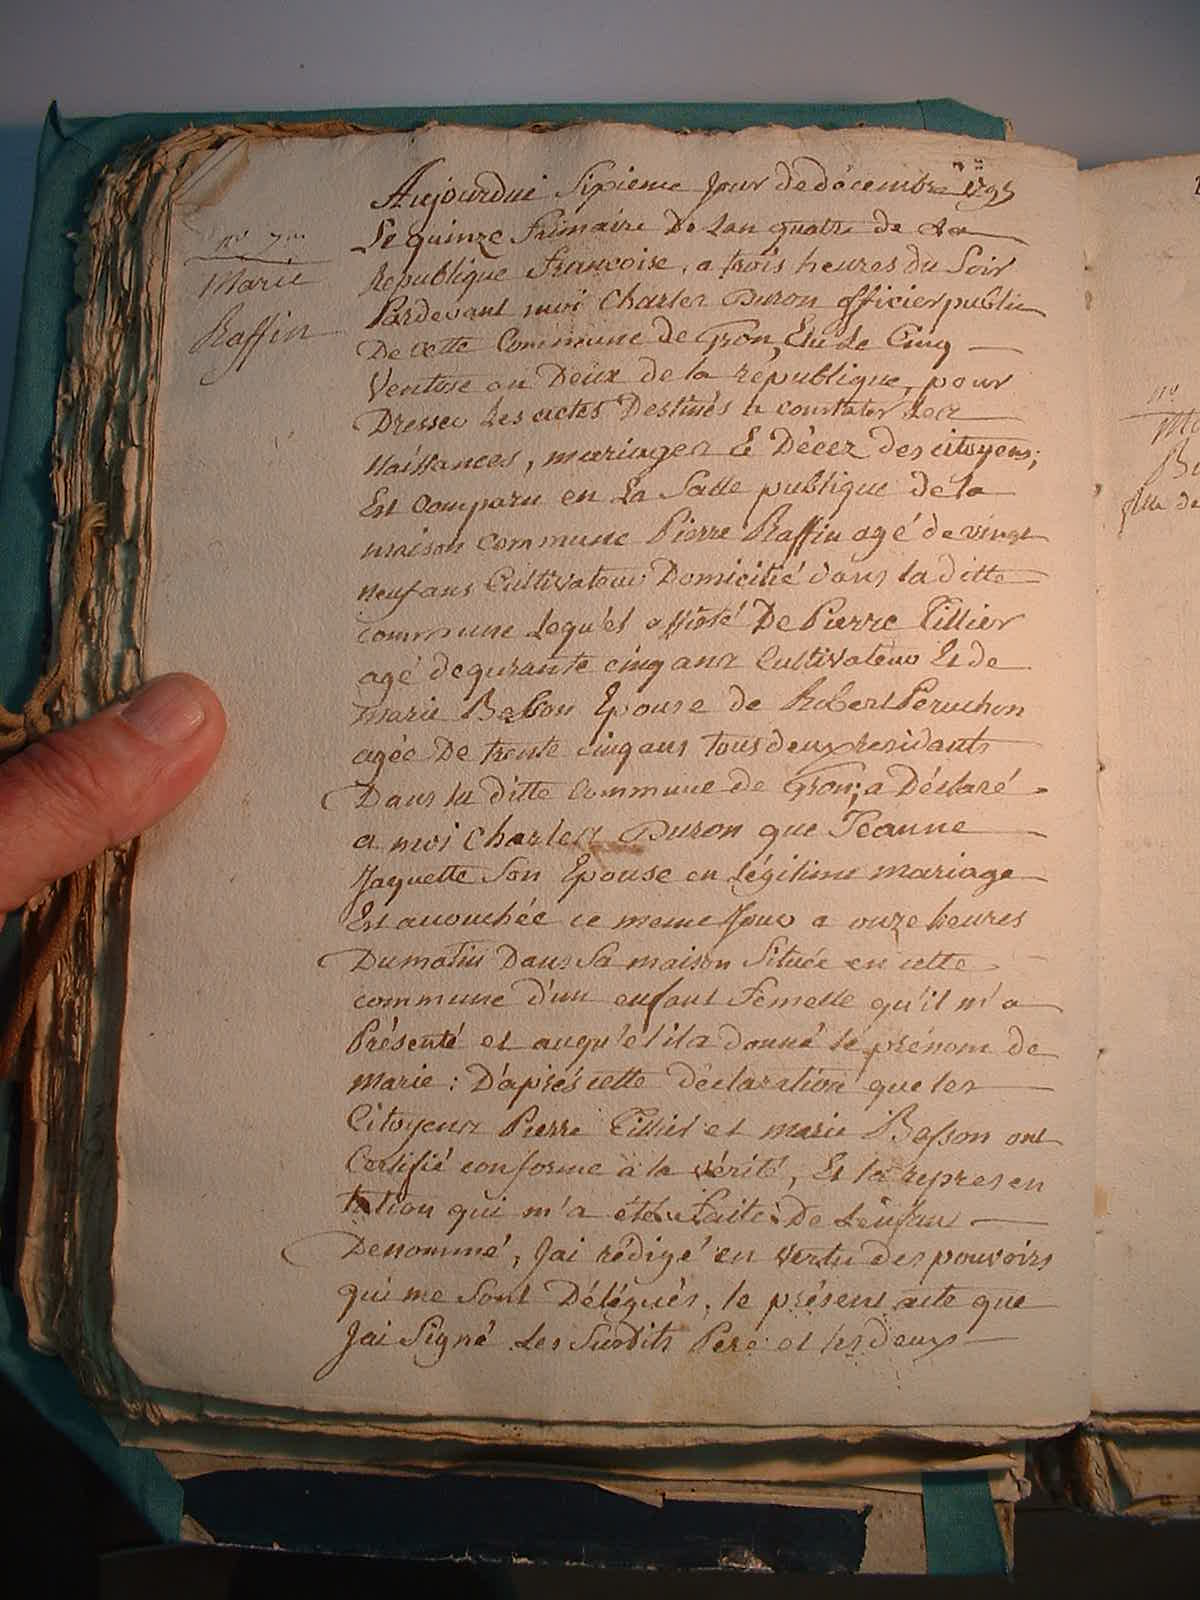 nº 7
Marie
Raffin
Aujourdui Sixieme Jour de décembre 1795
Le quinze frimaire De Lan quatre de La
République Francoise, a trois heures du Soir
Pardevant moi Charles Duron officier public
De cette Commune de Gron, Elu Le Cinq
Ventose an Deux de la république, pour
Dresser Les actes Destinés a constater Les
Naissances, mariages & Décez des citoyens;
Est Comparu en La Salle publique de la
maison commune Pierre Raffin agé de vingt
neuf ans Cultivateur Domicilié dans la ditte
commune Lequ'el assisté De Pierre Tillier
agé de qurante cinq ans Cultivateur Et de
marie Basson Epouse de Robert Peruchon
agée De trente cinq ans tous deux residants
Dans la ditte Commune de Gron; a Déclaré
a moi Charles Duron que Jeanne
Jaquette Son Epouse en légitime mariage
Est acouchée ce meme Jour a onze heures
Du matin Dans Sa maison Située en cette
commune d'un enfant Femelle qu'il m'a
Présenté et auqu'el il a donné le prénom de
marie : D'après cette déclaration que les
Citoyens Pierre Tillier et marie Basson ont
Certifié conforme à la vérité, Et la represen
tation qui m'a été Faite De Lenfant
Denommé, Jai rédigé en vertu des pouvoirs
qui me Sont Délégués, le présent acte que
Jai Signé Les Susdits Pere et les deux
nº